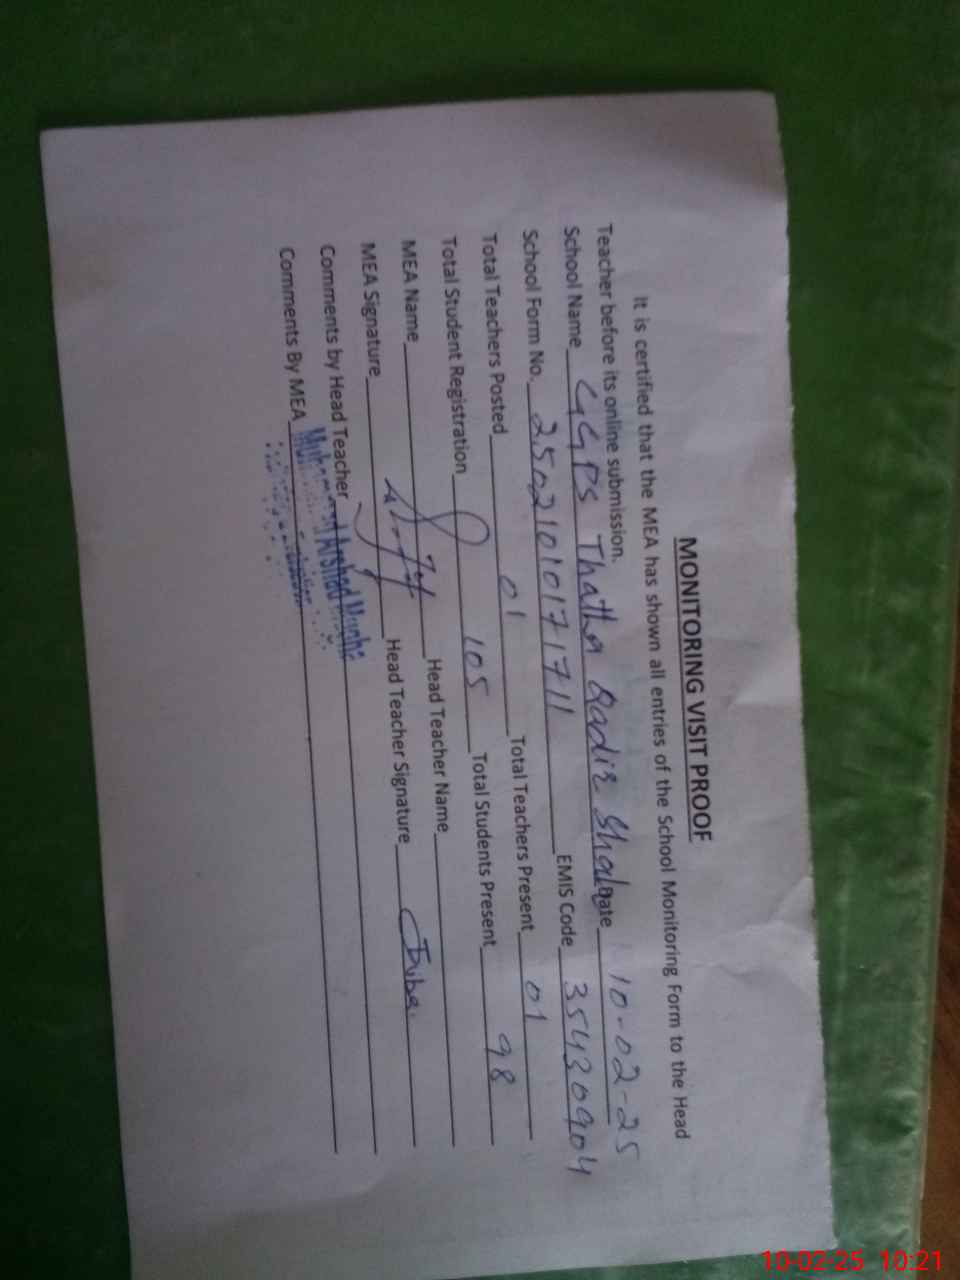 MONITORING VISIT PROOF
It is certified that the MEA has shown all entries of the School Monitoring Form to the Head
Teacher before its online submission.
School Name GGPS Thatha Qadir Shah Date 10-02-25
School Form No. 25021010171711 EMIS Code 35430904
Total Teachers Posted 01 Total Teachers Present 01
Total Student Registration 105 Total Students Present 98
MEA Name Head Teacher Name
MEA Signature Head Teacher Signature
Comments by Head Teacher
Comments By MEA
Muhammad Arshad
10-02-25 10:21